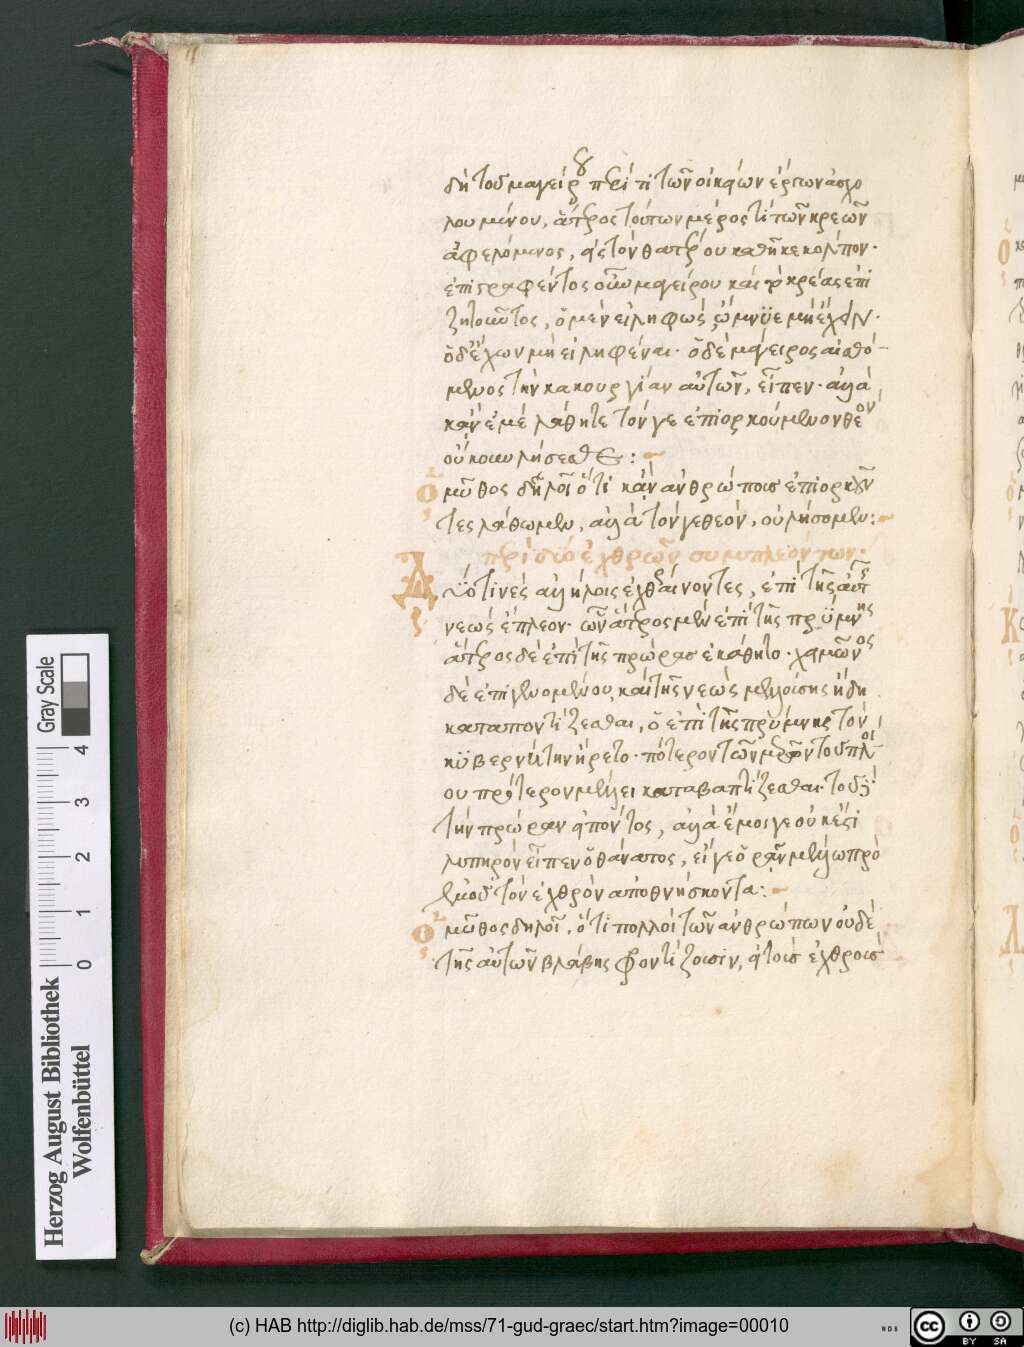 δὴ τοῦ μαγείρου περί τι τῶν οἰκείων ἔργων ἀσχο
λουμένου, ἅτερος τούτων μέρος τὶ τῶν κρεῶν
ἀφελόμενος, εἰς τὸν θατέρου καθῆκε κόλπον·
ἐπιστραφέντος οὖν μαγείρου καὶ τὸ κρέας ἐπι
ζητοῦντος, ὁ μὲν εἰληφὼς ὤμνυε μὴ ἔχειν·
ὁ δ' ἔχων μὴ εἰληφέναι· ὁ δὲ μάγειρος αἰσθό-
μενος τὴν κακουργίαν αὐτῶν, εἶπεν· ἀλλὰ
κἂν ἐμὲ λάθητε τόν γε ἐπιορκούμενον θεὸν
οὐκουν λήσεσθε:
Ὁ μῦθος δηλοῖ ὅτι κἂν ἀνθρώποις ἐπιορκοῦν
τες λάθωμεν, ἀλλὰ τόν γε θεόν, οὐ λήσομεν:
περὶ δύο ἐχθρῶν συμπλεόντων·
Δύο τινὲς ἀλλήλοις ἐχθραίνοντες, ἐπὶ τῆς αὐτῆς
νεὼς ἔπλεον· ὧν ἅτερος μὲν ἐπὶ τῆς πρύμνης
ἅτερος δὲ ἐπὶ τῆς πρώρας ἐκάθητο· χειμῶνος
δὲ ἐπιγενομένου, καὶ τῆς νεὼς μελλούσης ἤδη
καταποντίζεσθαι, ὁ ἐπὶ τῆς πρύμνης τὸν
κυβερνήτην ἤρετο· πότερον τῶν μερῶν τοῦ πλοί
ου πρότερον μέλλει καταβαπτίζεσθαι· τοῦ δὲ
τὴν πρώραν εἰπόντος, ἀλλὰ ἔμοιγε οὐκ ἔστι
λυπηρὸν εἶπεν ὁ θάνατος, εἴγε ὁρᾶν μέλλω πρὸ
ἐμοῦ τὸν ἐχθρὸν ἀποθνήσκοντα:
Ὁ μῦθος δηλοῖ, ὅτι πολλοὶ τῶν ἀνθρώπων οὐδὲ
τῆς αὐτῶν βλάβης φροντίζουσιν, εἰ τοὺς ἐχθροὺς
Herzog August Bibliothek
Wolfenbüttel
0 1 2 3 4
Gray Scale
(c) HAB http://diglib.hab.de/mss/71-gud-graec/start.htm?image=00010
WDB
cc BY SA